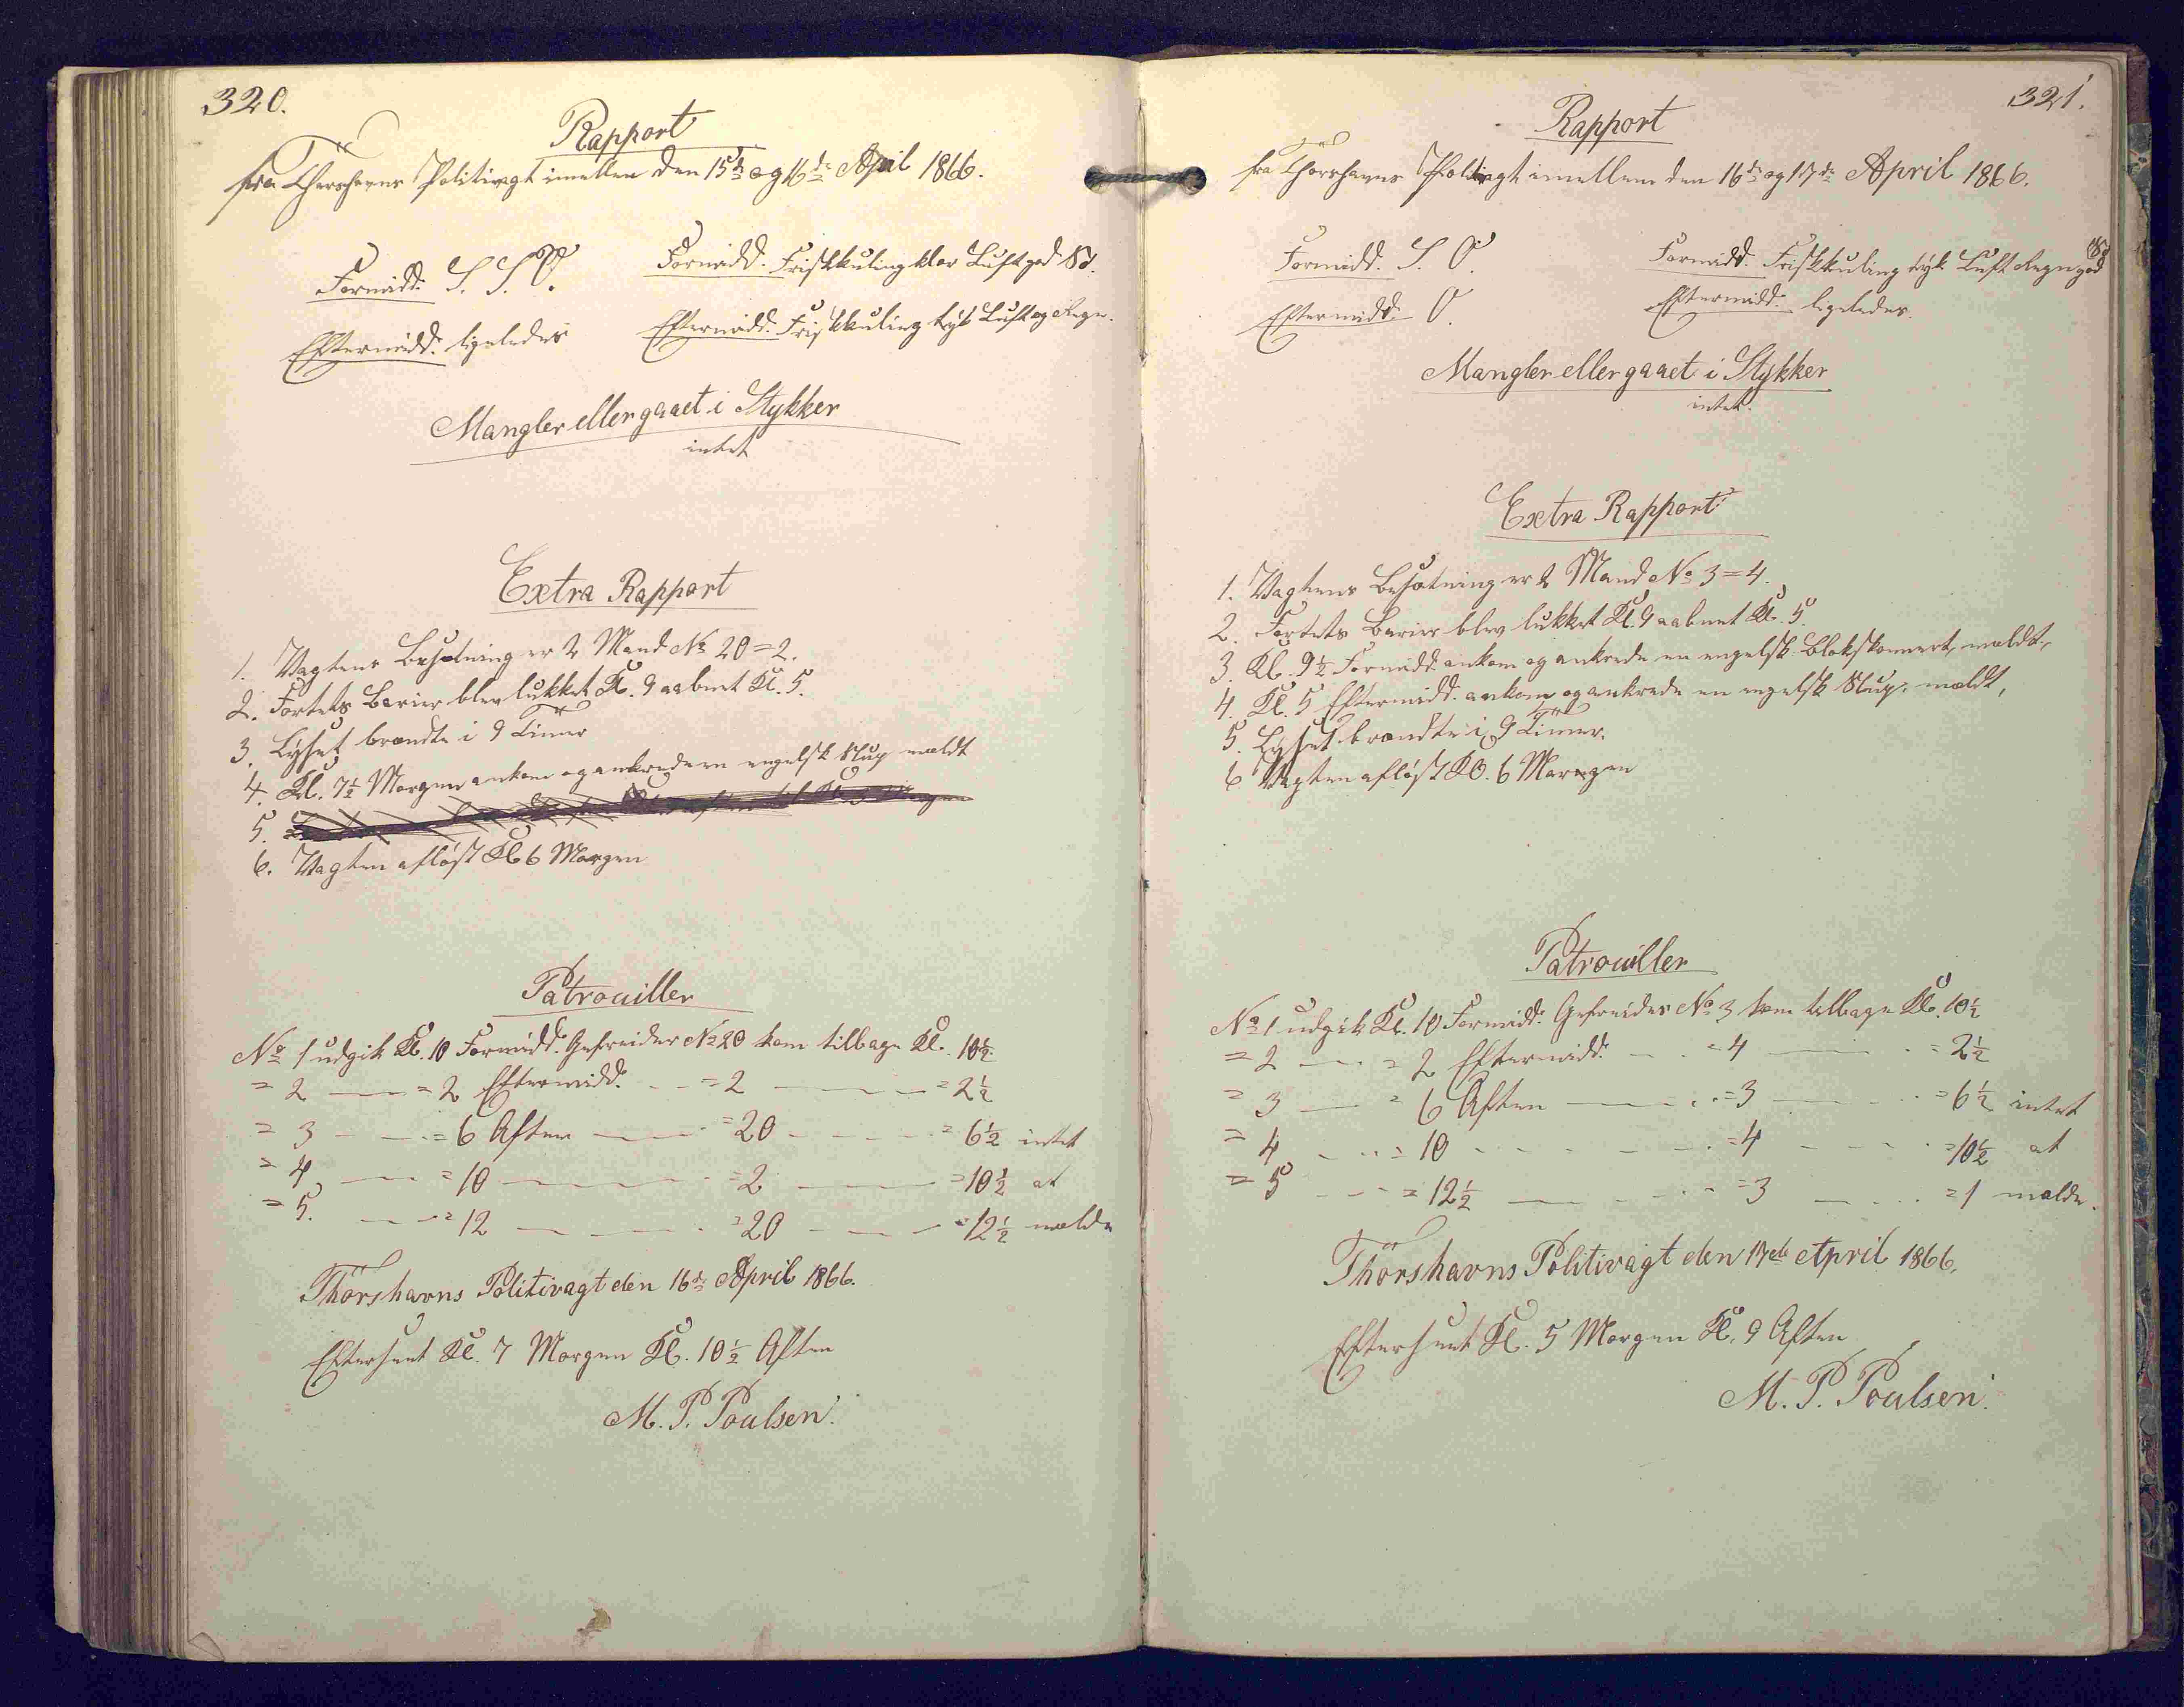 320.
Rapport
fra Thorshavns Politivagt imellem den 15de og 16de April 1866.
Formidd. S. S. O. Formidd. Friskkuling klar Luft god St.
Eftermidd. ligeledes Eftermidd. Friskkuling tyk Luft og Regn.
Mangler eller gaaet i Stykker
intet
Extra Rapport
1. Vagtens Besætning er 2 Mand No 20=2.
2. Fortets Barier blev lukket Kl. 9 aabnet Kl. 5.
3. Lyset brændte i 9 Timer
4. Kl. 7½ Morgen ankom og ankrede en engelsk Slup meldt
5.
6. Vagten afløst Kl 6 Morgen
Patrouiller
No 1 udgik Kl. 10 Formidd. Gefreider No 20 kom tilbage Kl. 10½
= 2 — = 2 Eftermidd. — = 2 — = 2½
= 3 — = 6 Aften — = 20 — = 6½ intet
= 4 — = 10 — = 2 — = 10½ at
= 5. — = 12 — = 20 — = 12½ melde
Thorshavns Politivagt den 16de April 1866.
Efterseet Kl. 7 Morgen Kl. 10½ Aften
M. P. Poulsen.
321.
Rapport
fra Thorshavns Politivagt imellem den 16de og 17de April 1866.
Formidd. S. O. Formidd. Friskkuling tyk Luft Regn god St
Eftermidd. O. Eftermidd. ligeledes.
Mangler eller gaaet i Stykker
intet.
Extra Rapport
1. Vagtens Besætning er 2 Mand No 3=4.
2. Fortets Barier blev lukket Kl. 9 aabnet Kl. 5.
3. Kl. 9½ Formidd. ankom og ankrede en engelsk Blokskonnert, meldt,
4. Kl. 5 Eftermidd. ankom og ankrede en engelsk Slup. meldt,
5. Lyset brændte i 9 Timer.
6 Vagten afløst Kl. 6 Morgen
Patrouiller
No 1 udgik Kl. 10 Formidd. Gefreider No 3 kom tilbage Kl. 10½
= 2 — = 2 Eftermidd. — = 4 — = 2½
= 3 — = 6 Aften — = 3 — = 6½ intet
= 4 — = 10 — = 4 — = 10½ at
= 5 — = 12½ — = 3 — = 1 melde.
Thorshavns Politivagt den 17de April 1866.
Efterseet Kl. 5 Morgen Kl. 9 Aften
M. P. Poulsen.